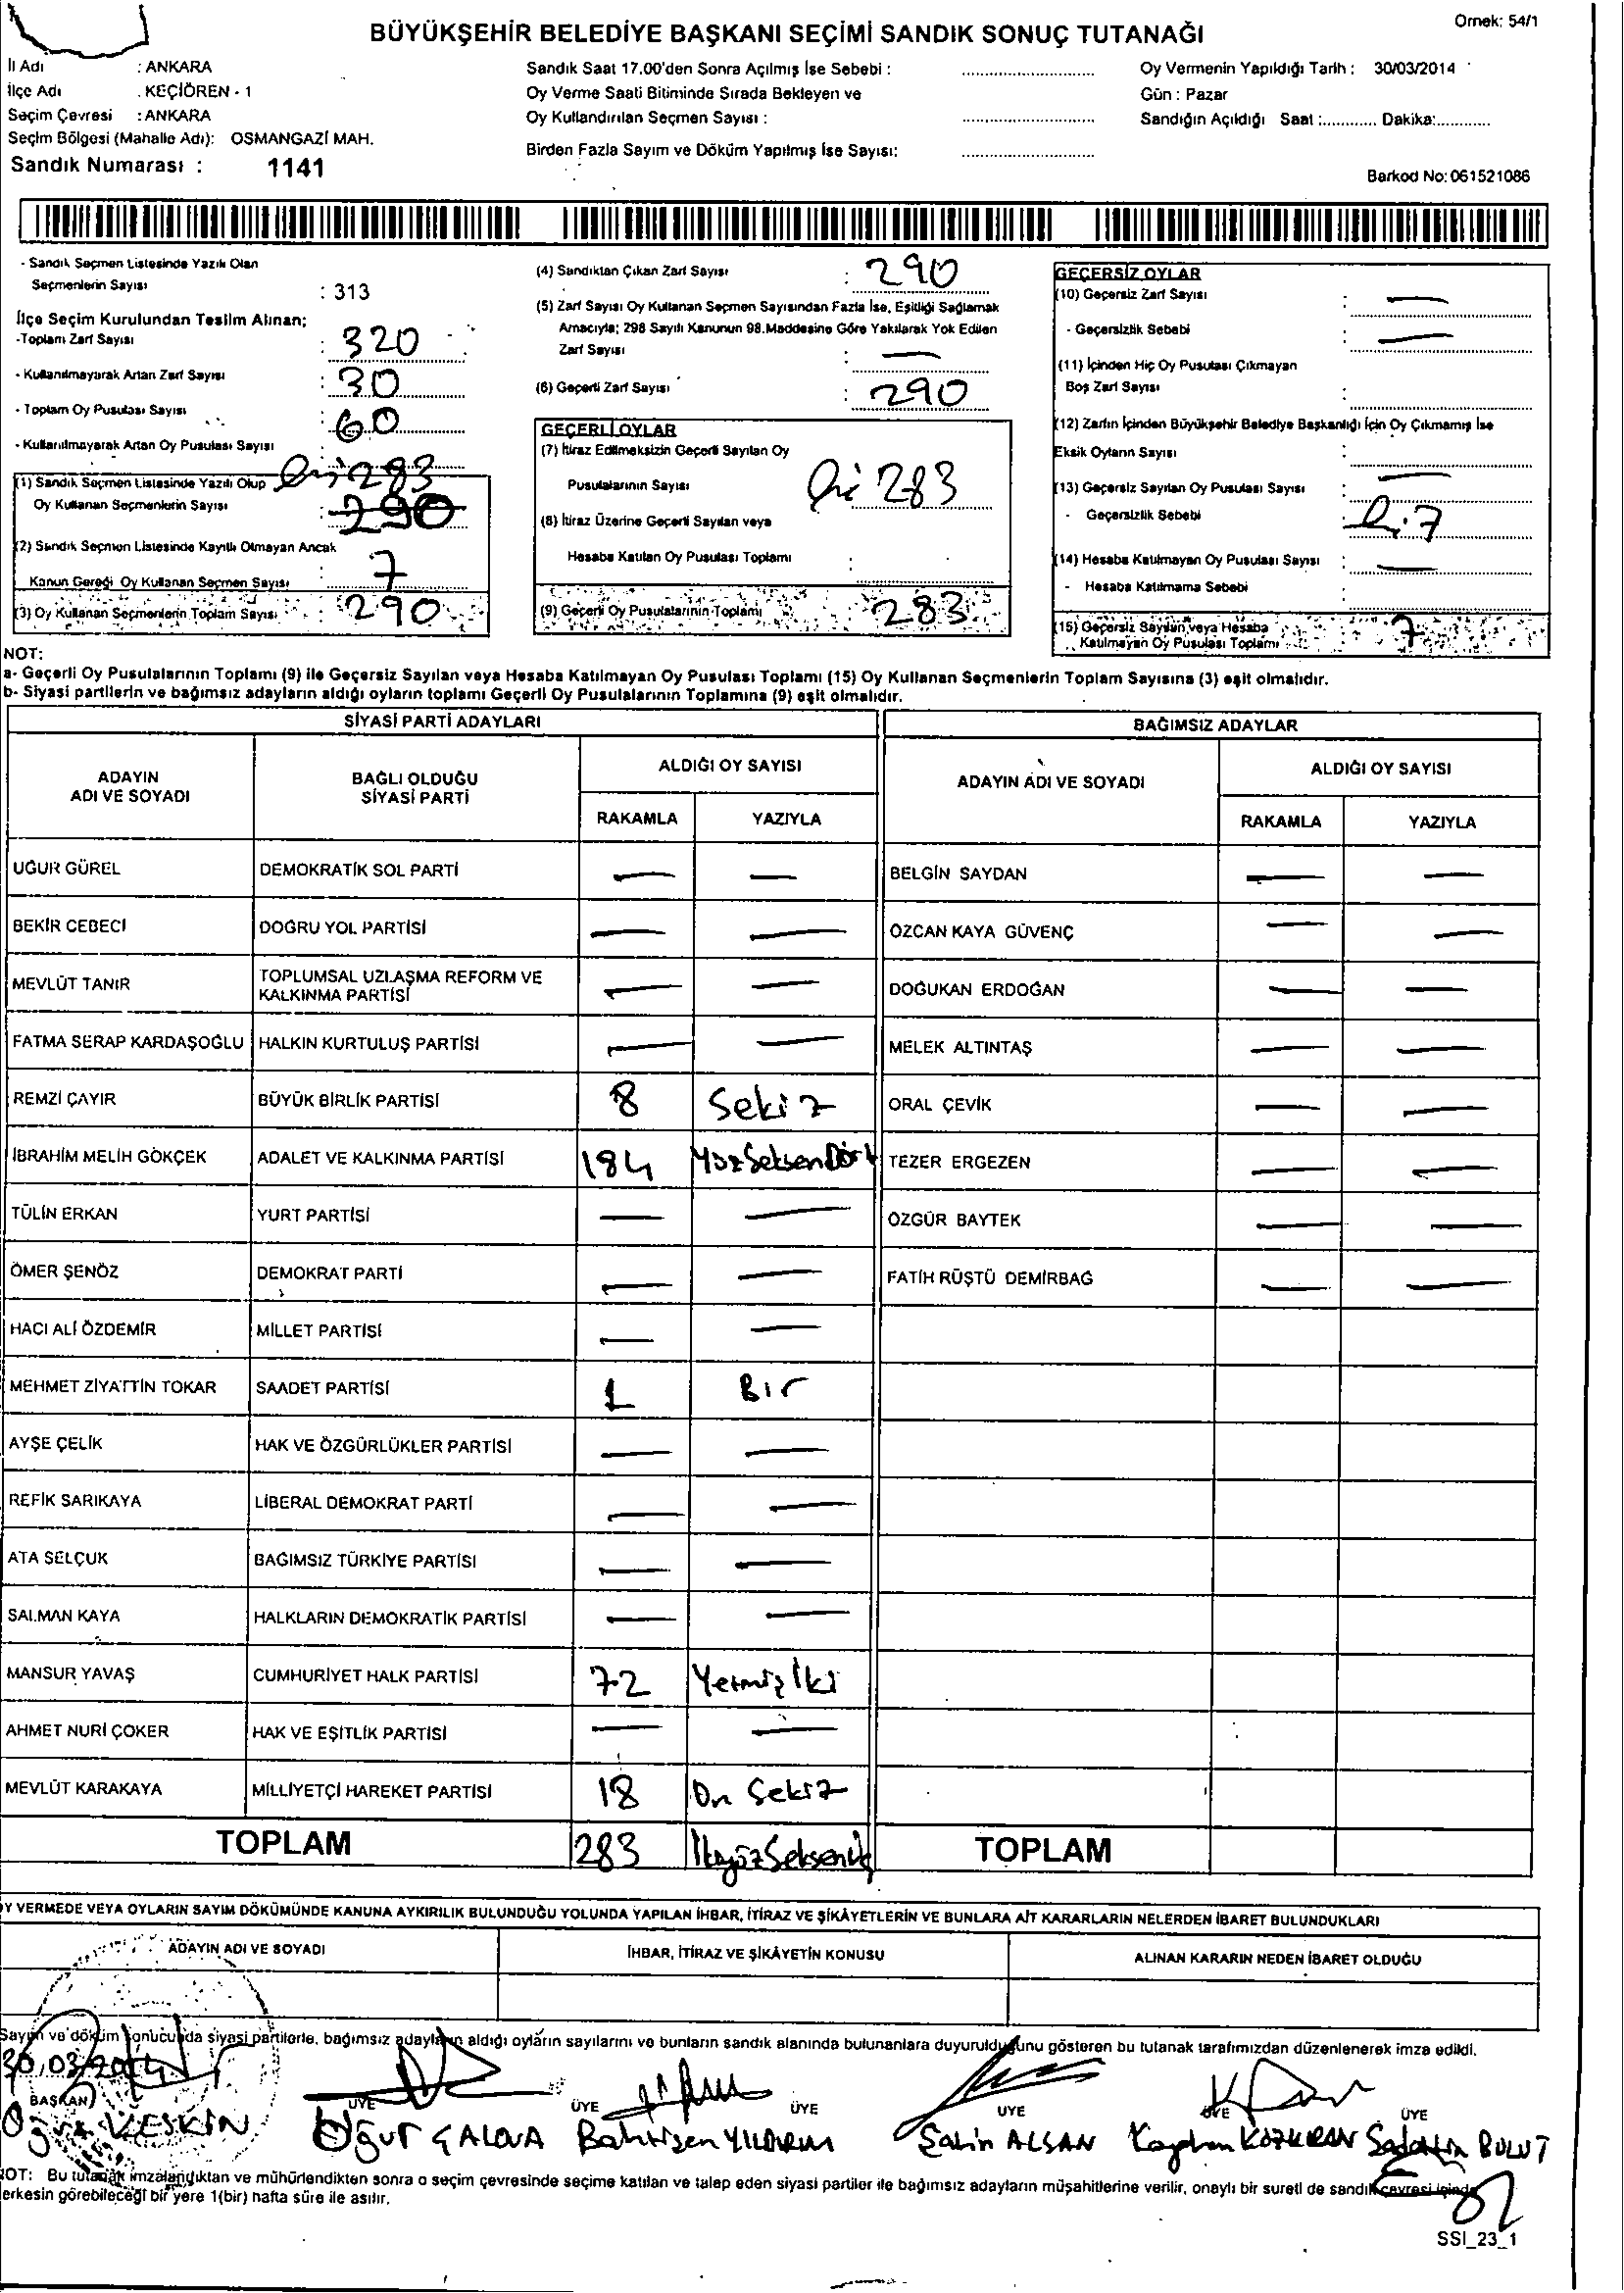 Örnek: 54/1
BÜYÜKŞEHİR BELEDİYE BAŞKANI SEÇİMİ SANDIK SONUÇ TUTANAĞI
İl Adı : ANKARA
İlçe Adı : KEÇİÖREN - 1
Seçim Çevresi : ANKARA
Seçim Bölgesi (Mahalle Adı): OSMANGAZİ MAH.
Sandık Numarası : 1141
Sandık Saat 17.00'den Sonra Açılmış İse Sebebi :
Oy Verme Saati Bitiminde Sırada Bekleyen ve
Oy Kullandırılan Seçmen Sayısı :
Birden Fazla Sayım ve Döküm Yapılmış İse Sayısı:
Oy Vermenin Yapıldığı Tarih : 30/03/2014
Gün : Pazar
Sandığın Açıldığı Saat :............ Dakika:............
Barkod No: 061521086
- Sandık Seçmen Listesinde Yazılı Olan
Seçmenlerin Sayısı : 313
İlçe Seçim Kurulundan Teslim Alınan;
-Toplam Zarf Sayısı : 320
- Kullanılmayarak Artan Zarf Sayısı : 30
- Toplam Oy Pusulası Sayısı : 60
- Kullanılmayarak Artan Oy Pusulası Sayısı :
(1) Sandık Seçmen Listesinde Yazılı Olup 283
Oy Kullanan Seçmenlerin Sayısı : 290
(2) Sandık Seçmen Listesinde Kayıtlı Olmayan Ancak
Kanun Gereği Oy Kullanan Seçmen Sayısı : 7
(3) Oy Kullanan Seçmenlerin Toplam Sayısı : 290
(4) Sandıktan Çıkan Zarf Sayısı : 290
(5) Zarf Sayısı Oy Kullanan Seçmen Sayısından Fazla İse, Eşitliği Sağlamak
Amacıyla; 298 Sayılı Kanunun 98.Maddesine Göre Yakılarak Yok Edilen
Zarf Sayısı : —
(6) Geçerli Zarf Sayısı : 290
GEÇERLİ OYLAR
(7) İtiraz Edilmeksizin Geçerli Sayılan Oy
Pusulalarının Sayısı 283
(8) İtiraz Üzerine Geçerli Sayılan veya
Hesaba Katılan Oy Pusulası Toplamı :
(9) Geçerli Oy Pusulalarının Toplamı : 283
GEÇERSİZ OYLAR
(10) Geçersiz Zarf Sayısı : —
- Geçersizlik Sebebi : —
(11) İçinden Hiç Oy Pusulası Çıkmayan
Boş Zarf Sayısı :
(12) Zarfın İçinden Büyükşehir Belediye Başkanlığı İçin Oy Çıkmamış İse
Eksik Oyların Sayısı :
(13) Geçersiz Sayılan Oy Pusulası Sayısı : —
- Geçersizlik Sebebi : 7
(14) Hesaba Katılmayan Oy Pusulası Sayısı : —
- Hesaba Katılmama Sebebi :
(15) Geçersiz Sayılan veya Hesaba
Katılmayan Oy Pusulası Toplamı : 7
NOT:
a- Geçerli Oy Pusulalarının Toplamı (9) ile Geçersiz Sayılan veya Hesaba Katılmayan Oy Pusulası Toplamı (15) Oy Kullanan Seçmenlerin Toplam Sayısına (3) eşit olmalıdır.
b- Siyasi partilerin ve bağımsız adayların aldığı oyların toplamı Geçerli Oy Pusulalarının Toplamına (9) eşit olmalıdır.
SİYASİ PARTİ ADAYLARI
ADAYIN ADI VE SOYADI
BAĞLI OLDUĞU SİYASİ PARTİ
ALDIĞI OY SAYISI
RAKAMLA YAZIYLA
UĞUR GÜREL DEMOKRATİK SOL PARTİ — —
BEKİR CEBECİ DOĞRU YOL PARTİSİ — —
MEVLÜT TANIR TOPLUMSAL UZLAŞMA REFORM VE KALKINMA PARTİSİ — —
FATMA SERAP KARDAŞOĞLU HALKIN KURTULUŞ PARTİSİ — —
REMZİ ÇAYIR BÜYÜK BİRLİK PARTİSİ 8 Sekiz
İBRAHİM MELİH GÖKÇEK ADALET VE KALKINMA PARTİSİ 184 YüzSeksenDört
TÜLİN ERKAN YURT PARTİSİ — —
ÖMER ŞENÖZ DEMOKRAT PARTİ — —
HACI ALİ ÖZDEMİR MİLLET PARTİSİ — —
MEHMET ZİYATTİN TOKAR SAADET PARTİSİ 1 Bir
AYŞE ÇELİK HAK VE ÖZGÜRLÜKLER PARTİSİ — —
REFİK SARIKAYA LİBERAL DEMOKRAT PARTİ — —
ATA SELÇUK BAĞIMSIZ TÜRKİYE PARTİSİ — —
SALMAN KAYA HALKLARIN DEMOKRATİK PARTİSİ — —
MANSUR YAVAŞ CUMHURİYET HALK PARTİSİ 72 Yetmiş İki
AHMET NURİ ÇOKER HAK VE EŞİTLİK PARTİSİ — —
MEVLÜT KARAKAYA MİLLİYETÇİ HAREKET PARTİSİ 18 On Sekiz
TOPLAM 283 İkiyüzSeksenÜç
BAĞIMSIZ ADAYLAR
ADAYIN ADI VE SOYADI
ALDIĞI OY SAYISI
RAKAMLA YAZIYLA
BELGİN SAYDAN — —
ÖZCAN KAYA GÜVENÇ — —
DOĞUKAN ERDOĞAN — —
MELEK ALTINTAŞ — —
ORAL ÇEVİK — —
TEZER ERGEZEN — —
ÖZGÜR BAYTEK — —
FATİH RÜŞTÜ DEMİRBAĞ — —
TOPLAM
OY VERMEDE VEYA OYLARIN SAYIM DÖKÜMÜNDE KANUNA AYKIRILIK BULUNDUĞU YOLUNDA YAPILAN İHBAR, İTİRAZ VE ŞİKÂYETLERİN VE BUNLARA AİT KARARLARIN NELERDEN İBARET BULUNDUKLARI
ADAYIN ADI VE SOYADI
İHBAR, İTİRAZ VE ŞİKÂYETİN KONUSU
ALINAN KARARIN NEDEN İBARET OLDUĞU
Sayım ve döküm sonucunda siyasi partilerle, bağımsız adayların aldığı oyların sayılarını ve bunların sandık alanında bulunanlara duyurulduğunu gösteren bu tutanak tarafımızdan düzenlenerek imza edildi.
30.03.2014
BAŞKAN ÜYE ÜYE ÜYE ÜYE ÜYE ÜYE
KESKİN Uğur ÇALOVA Bahtışen YILDIRIM Şahin ALSAN Kayahan KOZKIRAN Sadettin BULUT
NOT: Bu tutanak imzalandıktan ve mühürlendikten sonra o seçim çevresinde seçime katılan ve talep eden siyasi partiler ile bağımsız adayların müşahitlerine verilir, onaylı bir sureti de sandık çevresi içinde
herkesin görebileceği bir yere 1(bir) hafta süre ile asılır.
SSI_23_1